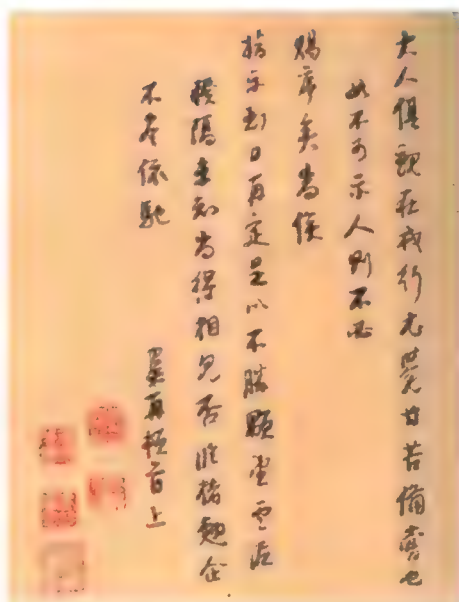 大人俱觀在我行尤覺甘苦備嘗也
如不可示人則不必
賜寄矣尚俟
指示到日再定是以不勝願望雲泥
橫隔未知尚得相見否臨楮翹企
不依馳 再頓首上